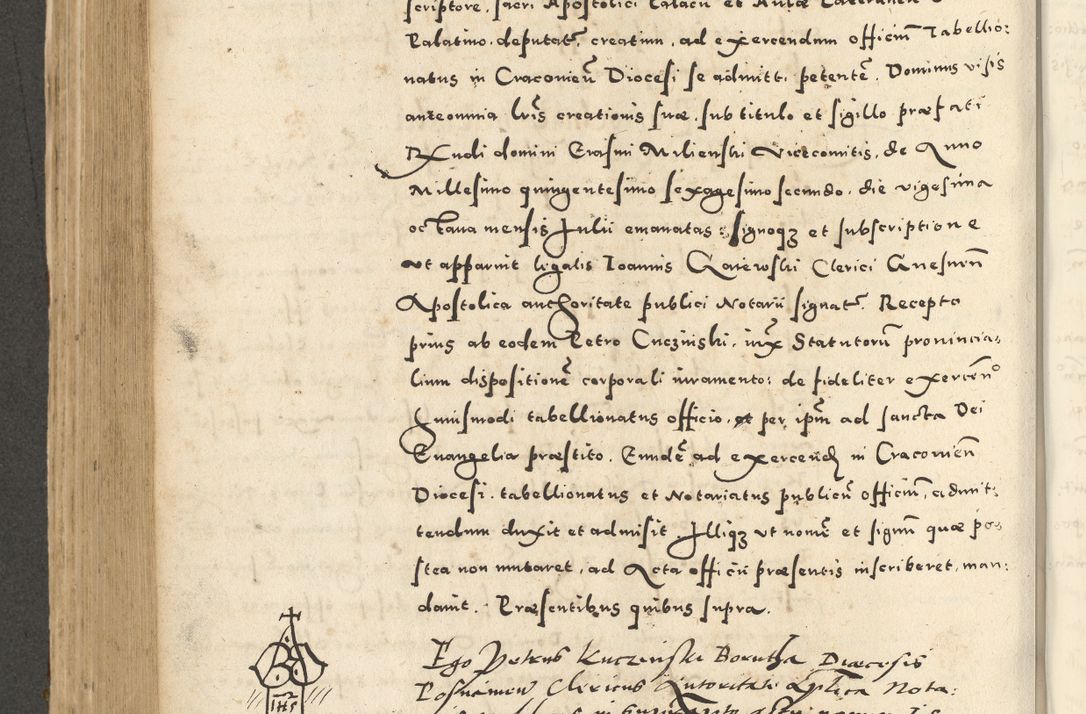 scriptore, sacri Apostolici Palacii et Aulae Lateranen
Palatino, deputatũ, creatum, ad exercendum officiũ Tabellio:
natus in Craconieñ Diocesi se admitti petentẽ. Dominus visis
anteomnia lrĩs creationis suae, sub titulo et sigillo praefati
Rñdi domini Erasmi Milienski Vicecomitis, de Anno
Millesimo quingentesimo sexagesimo secundo, die vigesima
octava mensis Julii emanatas: signoqȝ et subscriptione
ut apparuit legalis Joannis Gaiewski Clerici Gnesneñ
Apostolica authoritate publici Notarii signatũ. Recepto
prius ab eodem Petro Cuczinski, iuxͣ Statutorũ provincia,
lium dispositionẽ corporali iuramento: de fideliter exercenᵒ
Huiusmodi tabellionatus officio, et per ipm̃ ad sancta Dei
Euangelia praestito. Eundẽ ad exercendȝ in Craconieñ
Diocesi, tabellionatus et Notariatus publicũ officiũ, admit:
tendum duxit et admisit. Illiqȝ ut nomẽ et signũ quae pos
stea non mutaret, ad Acta officii praesentis inscriberet, man:
davit. Praesentibus quibus supra.
Ego Petrus Kuczinski Borutha Diœcesis
Posnanien Clericus Autoritate Aplica Nota:
IHS